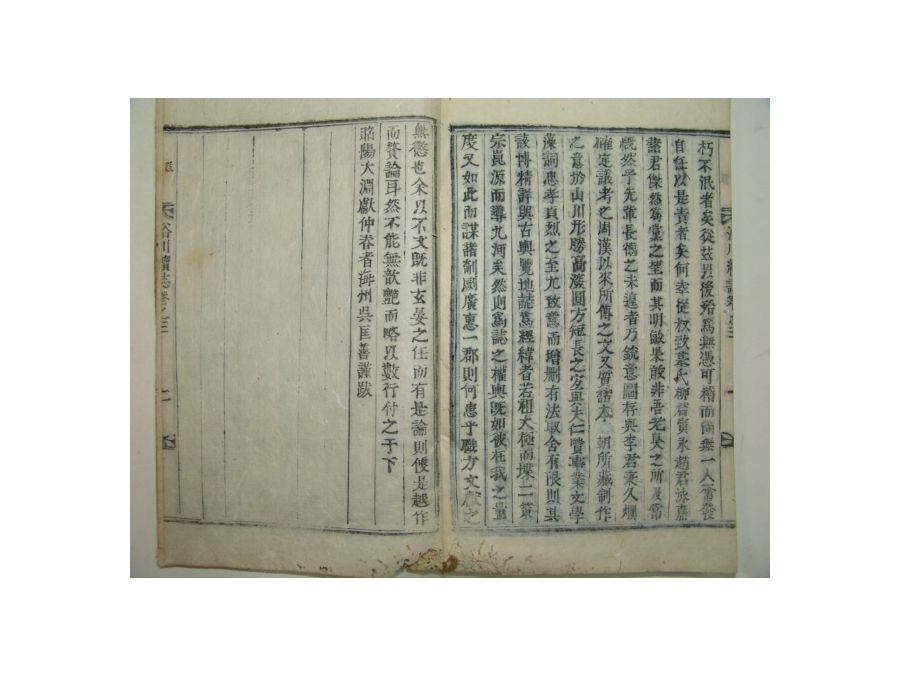 朽不泯者矣從玆以後殆爲無憑可稽而尙無一人奮發
自任以是責者矣何幸從叔致基氏柳君寅永趙君詠嘉
諸君傑然爲黨之望而其明敏果敢非吾老昊之所及常
慨然乎先輩長德之未遑者乃銳意圖存與李君秉久爛
確定議考之周漢以來所傳之文又質諸本 朝所藏制作
之意於山川形勝高深圓方短長之宐與夫仁賢事業文學
藻詞忠孝貞烈之至尤致意而增删有法取舍有限則其
該博精詳與古輿覽地誌爲經緯者若祖太極而堞二策
宗崑源而導九河矣然則爲誌之權輿旣如彼在我之量
度又如此而謀諸剞劂廣惠一郡則何患乎職方文獻之
無徵也余以不文旣非玄晏之任而有是論則便是越作
而贅論耳然不能無歆艶而略以數行付之于下
昭陽大淵獻仲春者海州吳匡善謹跋
谷川續誌卷之三